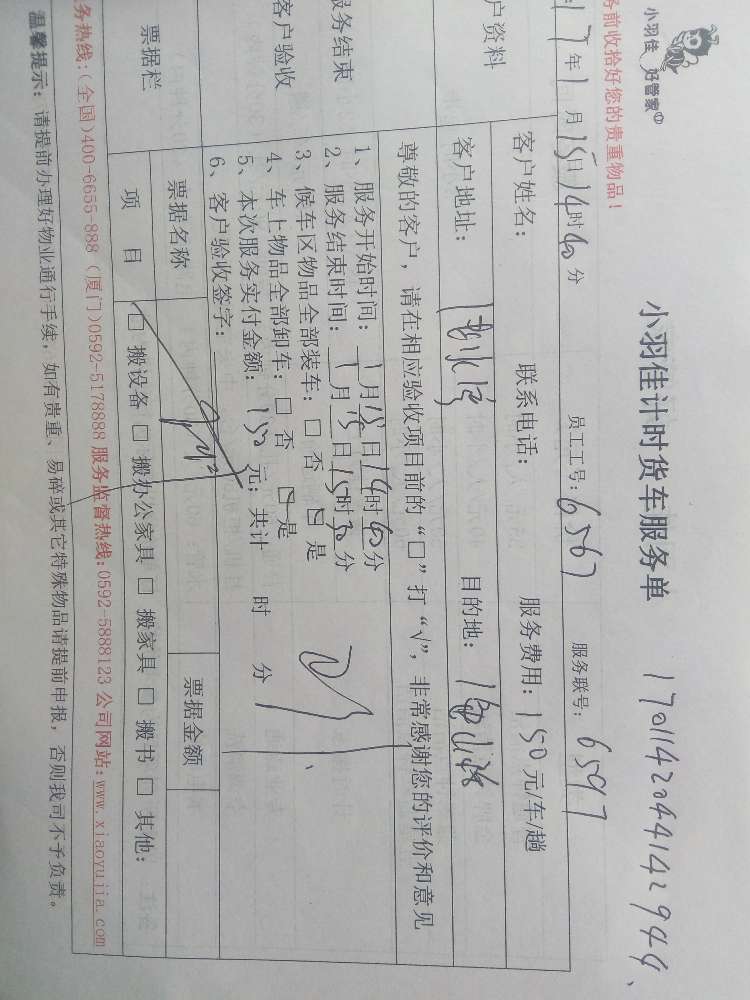 小羽佳 好管家
小羽佳计时货车服务单
17011420441429 44
务前收拾好您的贵重物品！
17年1月15日14时40分 员工工号：6567 服务联号：6597
户资料
客户姓名： 联系电话： 服务费用：150元/车/趟
客户地址： 目的地：
服务结束
客户验收
尊敬的客户，请在相应验收项目前的“□”打“√”，非常感谢您的评价和意见
1、服务开始时间：1月15日14时40分
2、服务结束时间：1月15日15时30分
3、候车区物品全部装车：□否 □是
4、车上物品全部卸车：□否 □是
5、本次服务实付金额：150元；共计 时 分
6、客户验收签字：
票据栏
票据名称 票据金额
项 目 □搬设备 □搬办公家具 □搬家具 □搬书 □其他：
务热线：(全国)400-6655-888 (厦门)0592-5178888 服务监督热线：0592-5888123 公司网站：www.xiaoyujia.com
温馨提示：请提前办理好物业通行手续，如有贵重、易碎或其它特殊物品请提前申报，否则我司不予负责。